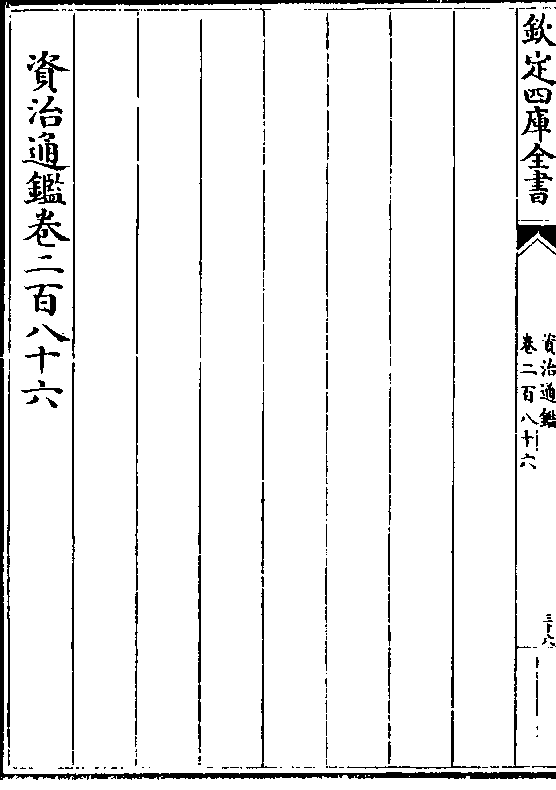 欽定四庫全書
資治通鑑
卷二百八十六
三十六
資治通鑑卷二百八十六